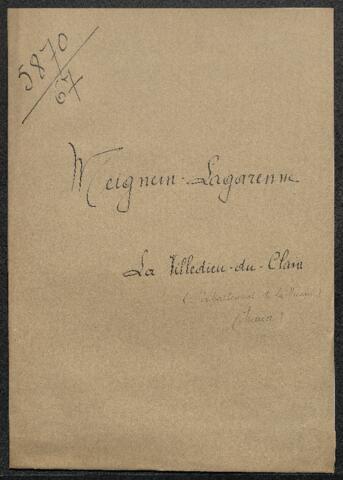 5870
67
Meignen-Lagarenne
La Villedieu-du-Clain
(Département de la Vienne)